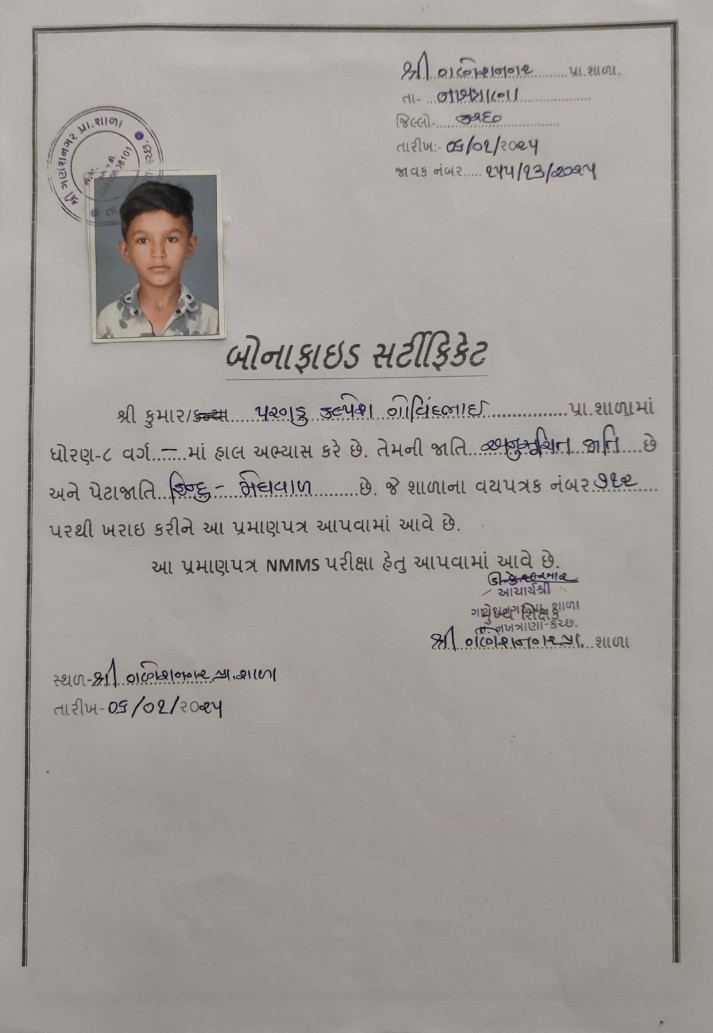 શ્રી ગણેશનગર.........પ્રા.શાળા.
તા-...નખત્રાણા..................
જિલ્લો-....કચ્છ..............
તારીખ:- ૦૬/૦૨/૨૦૨૫
જાવક નંબર..... ૨૫૫/૨૩/૨૦૨૫
શ્રી ગણેશનગર પ્રા.શાળા
બોનાફાઇડ સર્ટીફિકેટ
શ્રી કુમાર/કન્યા....પરગડુ કલ્પેશ ગોવિંદભાઇ................પ્રા.શાળામાં
ધોરણ-૮ વર્ગ....–....માં હાલ અભ્યાસ કરે છે. તેમની જાતિ ..અનુસૂચિત જાતિ ....છે
અને પેટાજાતિ..હિન્દુ - મેઘવાળ..........છે. જે શાળાના વયપત્રક નંબર.૭૬૨....
પરથી ખરાઇ કરીને આ પ્રમાણપત્ર આપવામાં આવે છે.
આ પ્રમાણપત્ર NMMS પરીક્ષા હેતુ આપવામાં આવે છે.
આચાર્યશ્રી
મુખ્ય શિક્ષક
તા.નખત્રાણા-કચ્છ.
શ્રી ગણેશનગર પ્રા. શાળા
સ્થળ-શ્રી ગણેશનગર પ્રા.શાળા
તારીખ-૦૬/૦૨/૨૦૨૫